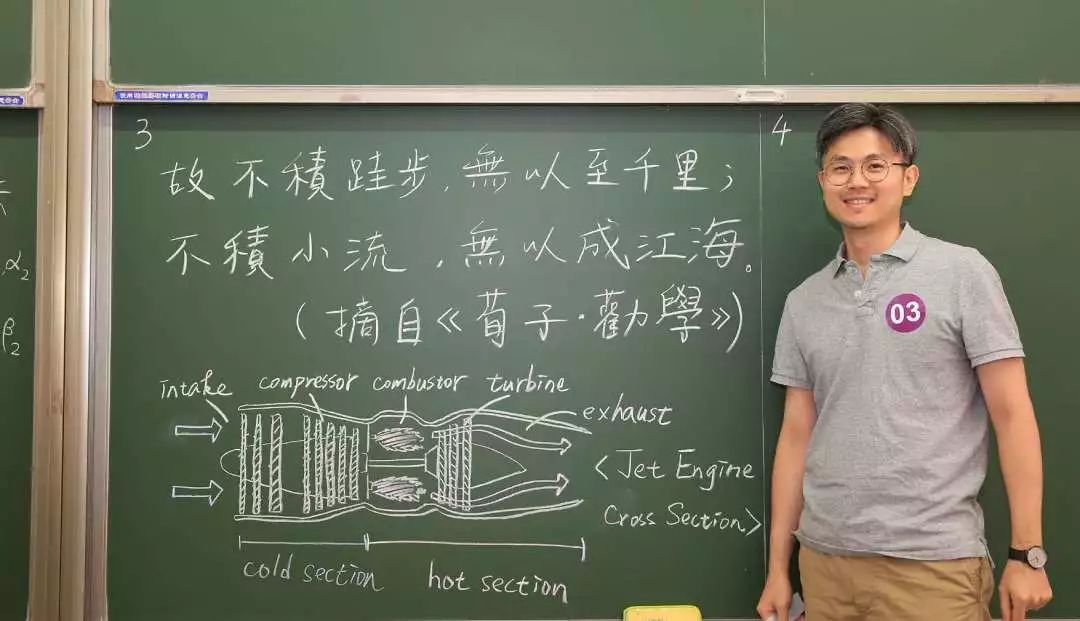 3
故不積跬步,無以至千里;
不積小流,無以成江海。
(摘自《荀子·勸學》)
intake compressor combustor turbine
exhaust
<Jet Engine
Cross Section>
cold section hot section
4
03
α2
β2